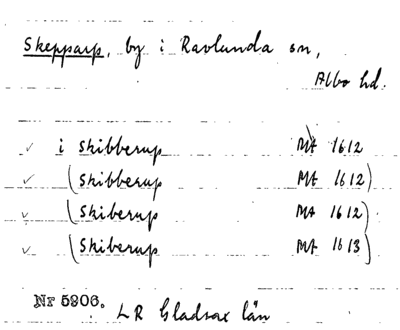 Skepparp, by i Ravlunda sn,
Albo hd.
✓ i Skibberup MA 1612
✓ (Skibberup MA 1612)
✓ (Skiberup MA 1612)
✓ (Skiberup MA 1613)
Nr 5906. LR Gladsax län